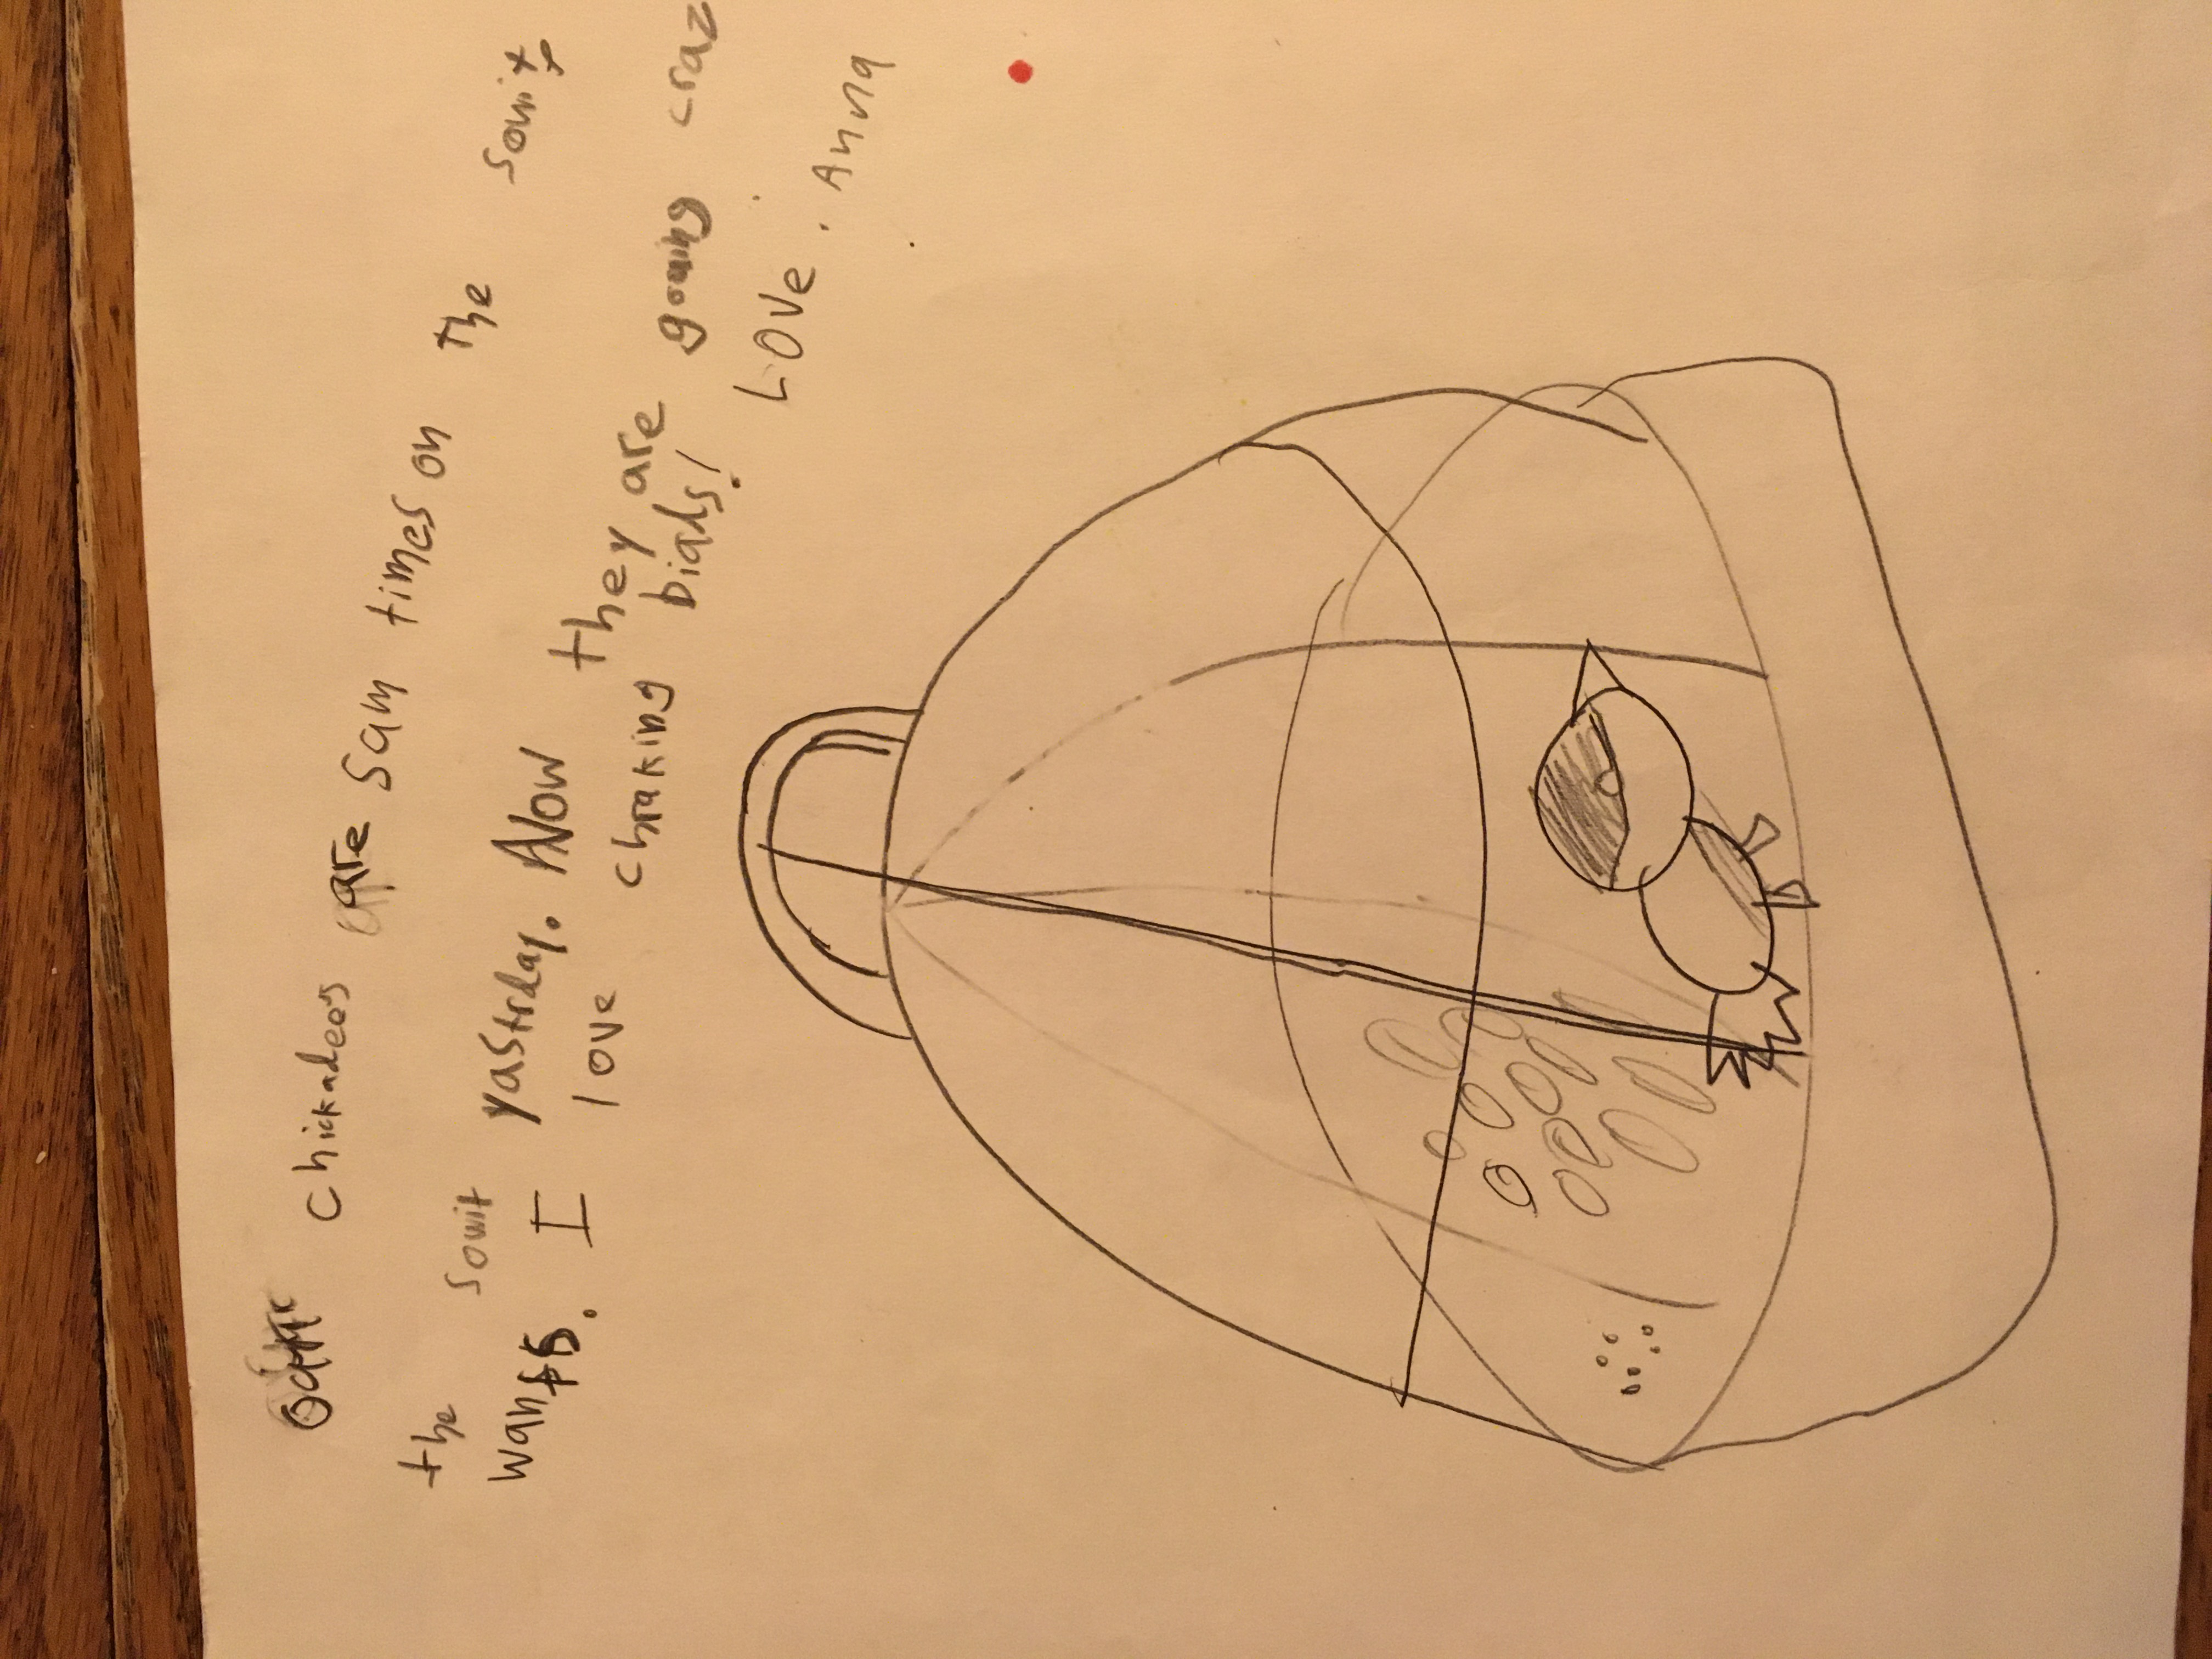 chickadees are sam times on the sowit
the sowit yastrday. Now they are gowing craz
wants. I love chraking biads!
LOVE. Anna